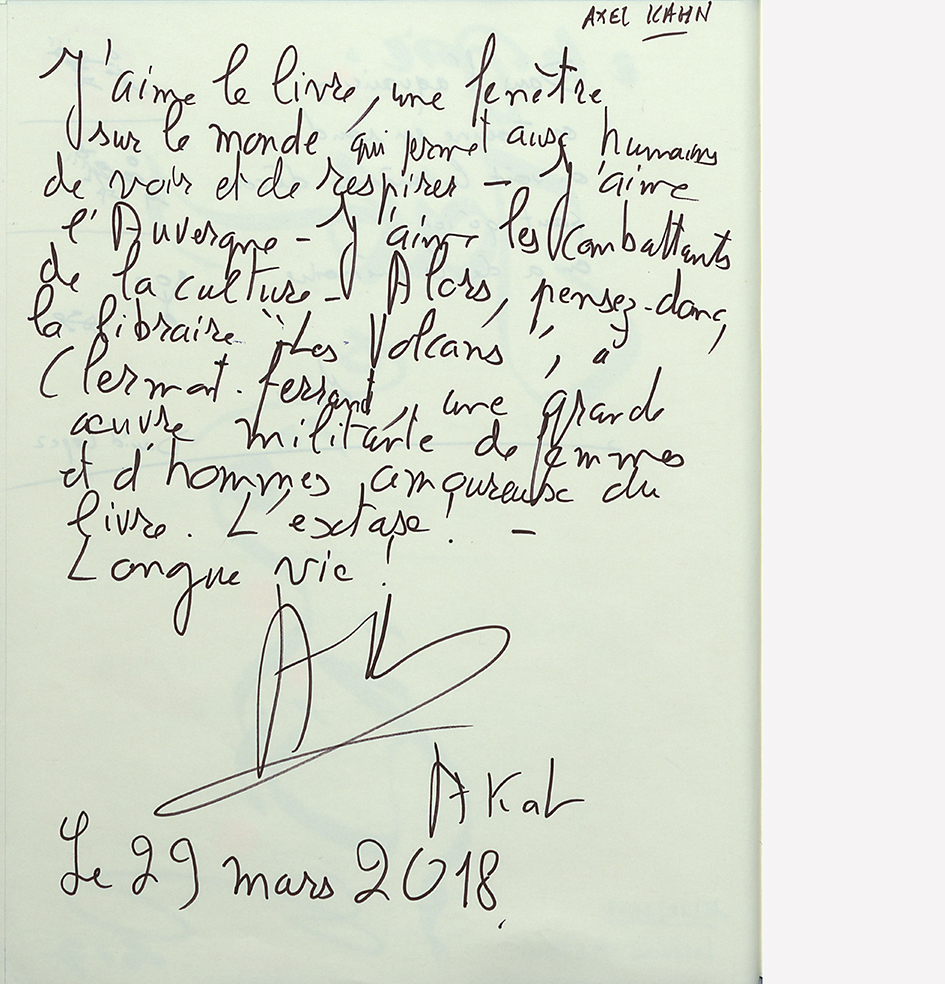 AXEL KAHN
J'aime le livre, une fenêtre
sur le monde qui permet aux humains
de voir et de respirer - J'aime
l'Auvergne - J'aime les combattants
de la culture - Alors, pensez-donc,
la libraire "Les Volcans", à
Clermont-Ferrand, une grande
œuvre militante de femmes
et d'hommes amoureuse du
livre. L'extase ! -
Longue vie !
A Kah
Le 29 mars 2018.